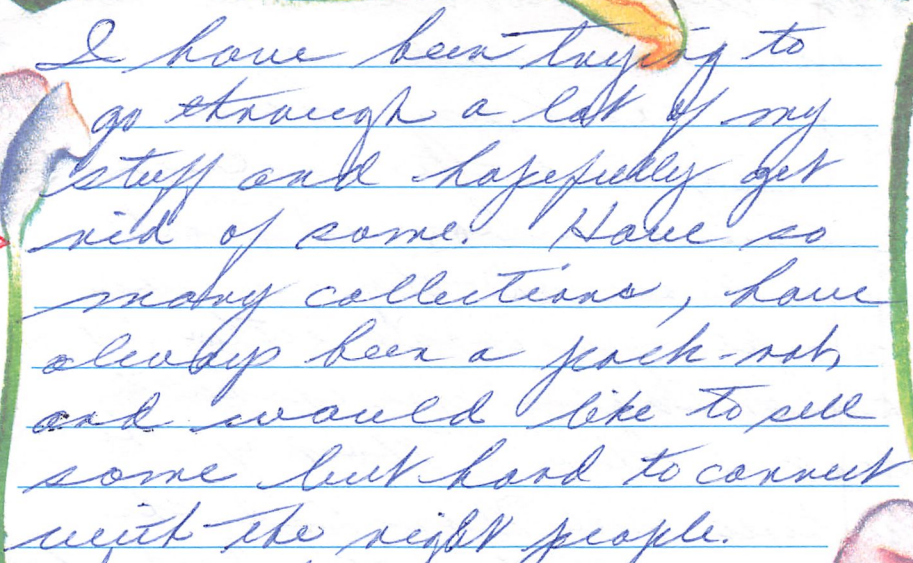 I have been trying to
go through a lot of my
stuff and hopefully get
rid of some. Have so
many collections, have
always been a pack-rat,
and would like to sell
some but hard to connect
with the right people.